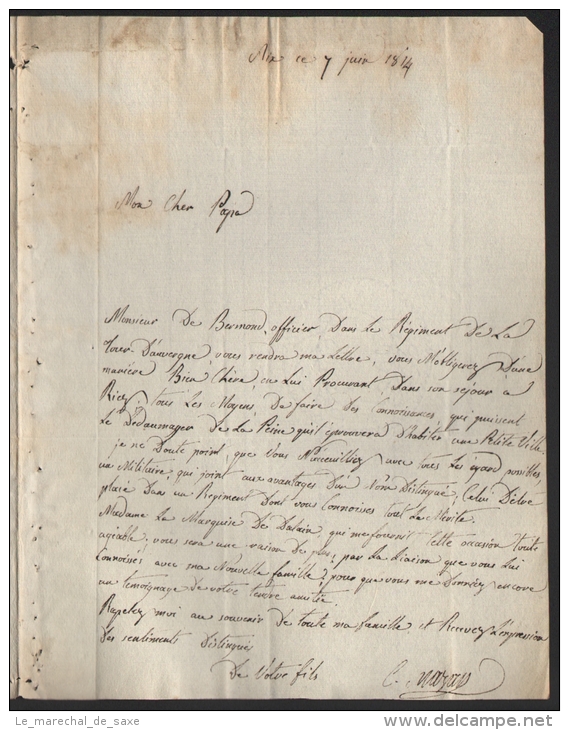 Aix ce 7 juin 1814
Mon Cher Papa
Monsieur De Bermond, officier Dans Le Régiment De La
tour D'auvergne vous rendra ma Lettre, vous M'obligerez D'une
manière Bien Chère en Lui Procurant Dans son sejour à
Riez, tous Les Moyens De faire Des Connoissances, qui puissent
Le Dédommager De La Peine qu'il éprouvera D'habiter une Petite Ville
je ne Doute point, que Vous N'acceuilliez avec tous Les égard possibles,
un Militaire, qui joint aux avantages D'un Nom Distingué, Celui D'être
placé Dans un Régiment Dont vous Connoises tout Le Mérite.
Madame La Marquise De qui me fournit Cette occasion toute
agréable; vous sera une raison De plus, par La Liaison que vous Lui
Connoisés avec ma Nouvelle famille, pour que vous me Donniez encore
un temoignage De votre tendre amitié.
Rapelez moi au souvenir De toute ma famille et Recevez L'expression
Des sentiments Distingués
De Votre fils
Le_marechal_de_saxe
www.delcampe.net